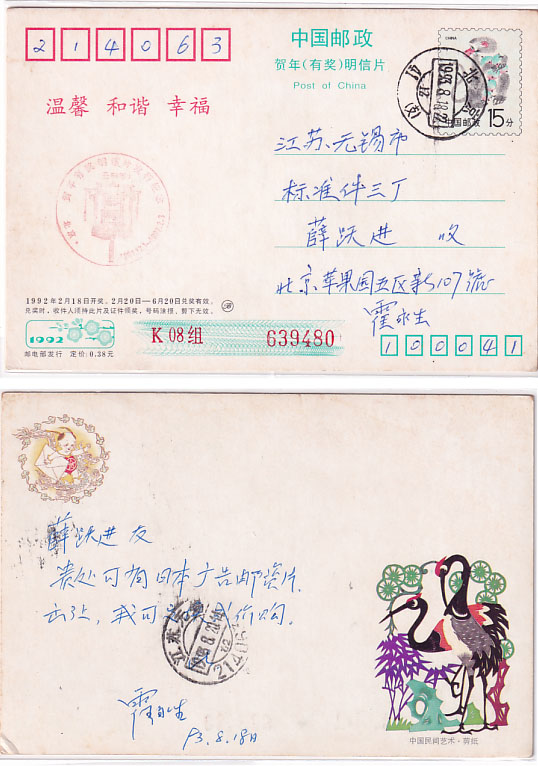 214063
中国邮政
贺年(有奖)明信片
Post of China
CHINA
中国邮政 15分
温馨 和谐 幸福
江苏、无锡市
标准件三丁
薛跃进 收
北京苹果园五区新107號
霍永生
1992年2月18日开奖。2月20日—6月20日兑奖有效。
兑奖时,收件人须持此片及证件领奖,号码涂损、剪下无效。
1992
K 08组
639480
邮电部发行 定价:0.38元
100041
薛跃进友
贵处可有日本广告邮资片
出让,我可 价购.
霍永生
93.8.18日
中国民间艺术·剪纸